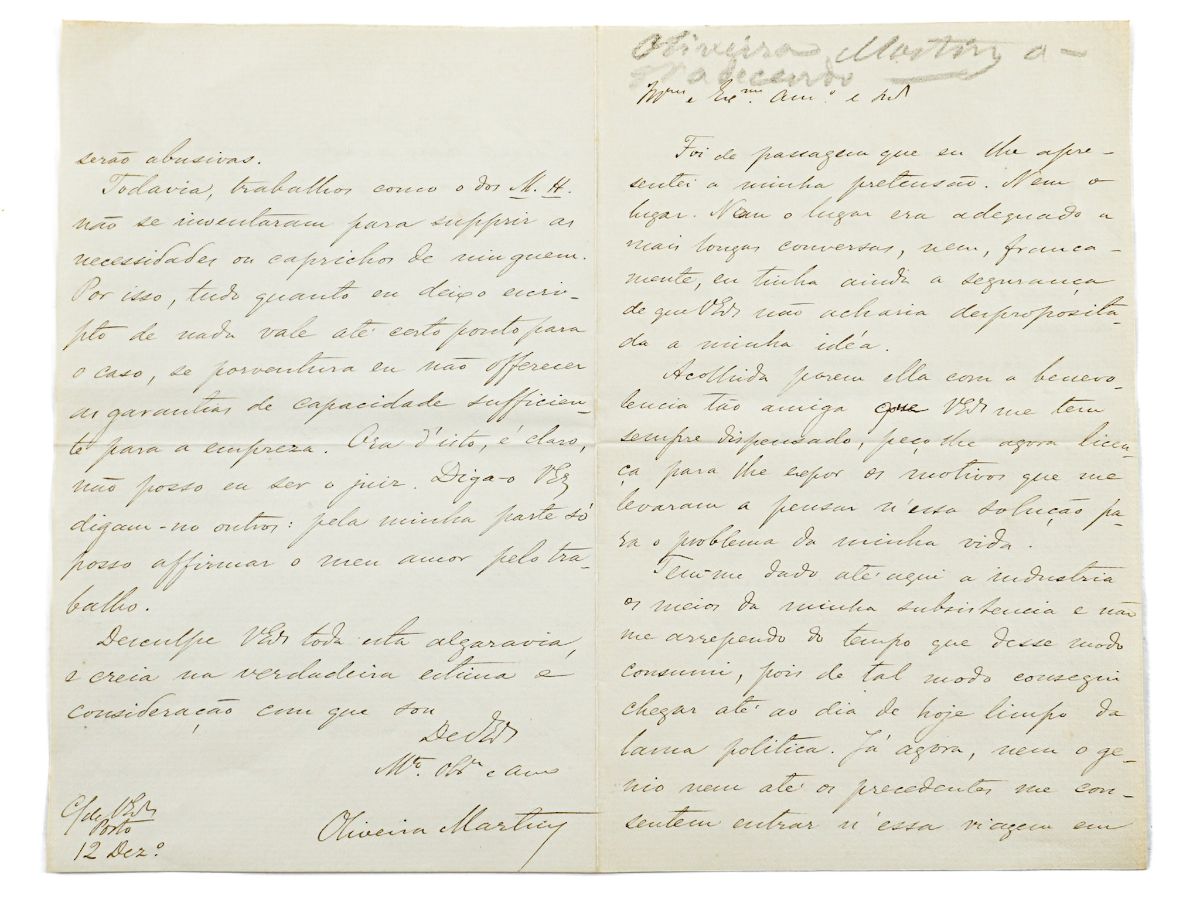 Oliveira Martins a-
gradecendo
Illmo e Exmo. Amo. e Snr
Foi de passagem que eu lhe apre-
sentei a minha pretensão. Nem o
lugar. Nem o lugar era adequado a
mais longas conversas, nem, franca-
mente, eu tinha ainda a segurança
de que VExa não acharia desproposita-
da a minha idéa.
Acolhida porem ella com a benevo-
lencia tão amiga que VExa me tem
sempre dispensado, peço lhe agora licen-
ça para lhe expor os motivos que me
levaram a pensar n'essa solução pa-
ra o problema da minha vida.
Tem-me dado até aqui a industria
os meios da minha subsistencia e não
me arrependo do tempo que desse modo
consumi, pois de tal modo consegui
chegar até ao dia de hoje limpo da
lama politica. Já agora, nem o ge-
nio nem até os precedentes me con-
sentem entrar n'essa viagem em
serão abusivas.
Todavia, trabalhos como o dos M. H.
não se inventaram para supprir as
necessidades ou caprichos de ninguem.
Por isso, tudo quanto eu deixo escri-
pto de nada vale até certo ponto para
o caso, se porventura eu não offerecer
as garantias de capacidade sufficien-
te para a empreza. Ora d'isto, é claro,
não posso eu ser o juiz. Diga-o VExa
digam-no outros: pela minha parte só
posso affirmar o meu amor pelo tra-
balho.
Desculpe VExa toda esta algaravia,
e creia na verdadeira estima e
consideração com que sou
De VExa
Mto. Obro e amo
Oliveira Martins
C/de VExa
Porto
12 Dezo.